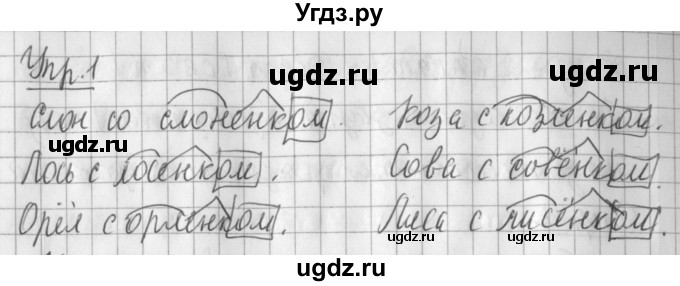 Угдз.ру
Упр.1
ugdz.ru
ugdz.ru
Слон со слонёнком. Коза с козлёнком.
ugdz.ru
Лось с лосёнком. Сова с совёнком.
Орёл с орлёнком. Лиса с лисёнком.
ugdz.ru
ugdz.ru
ugdz.ru